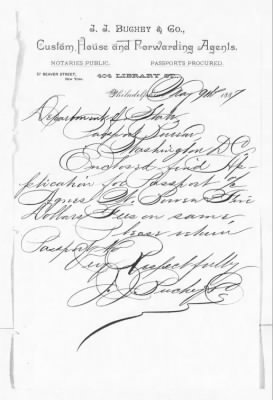 J. J. BUGHEY & Co.,
Custom House and Forwarding Agents.
NOTARIES PUBLIC. PASSPORTS PROCURED.
57 BEAVER STREET,
New York.
404 LIBRARY ST.
Philadelphia, May 9th 1887
Department of State
Passport Bureau
Washington D C
Enclosed find Ap-
plication for Passport to
Agnes
Dollars Fees on same
Please
Passport
Very Respectfully
J J Bughey & Co